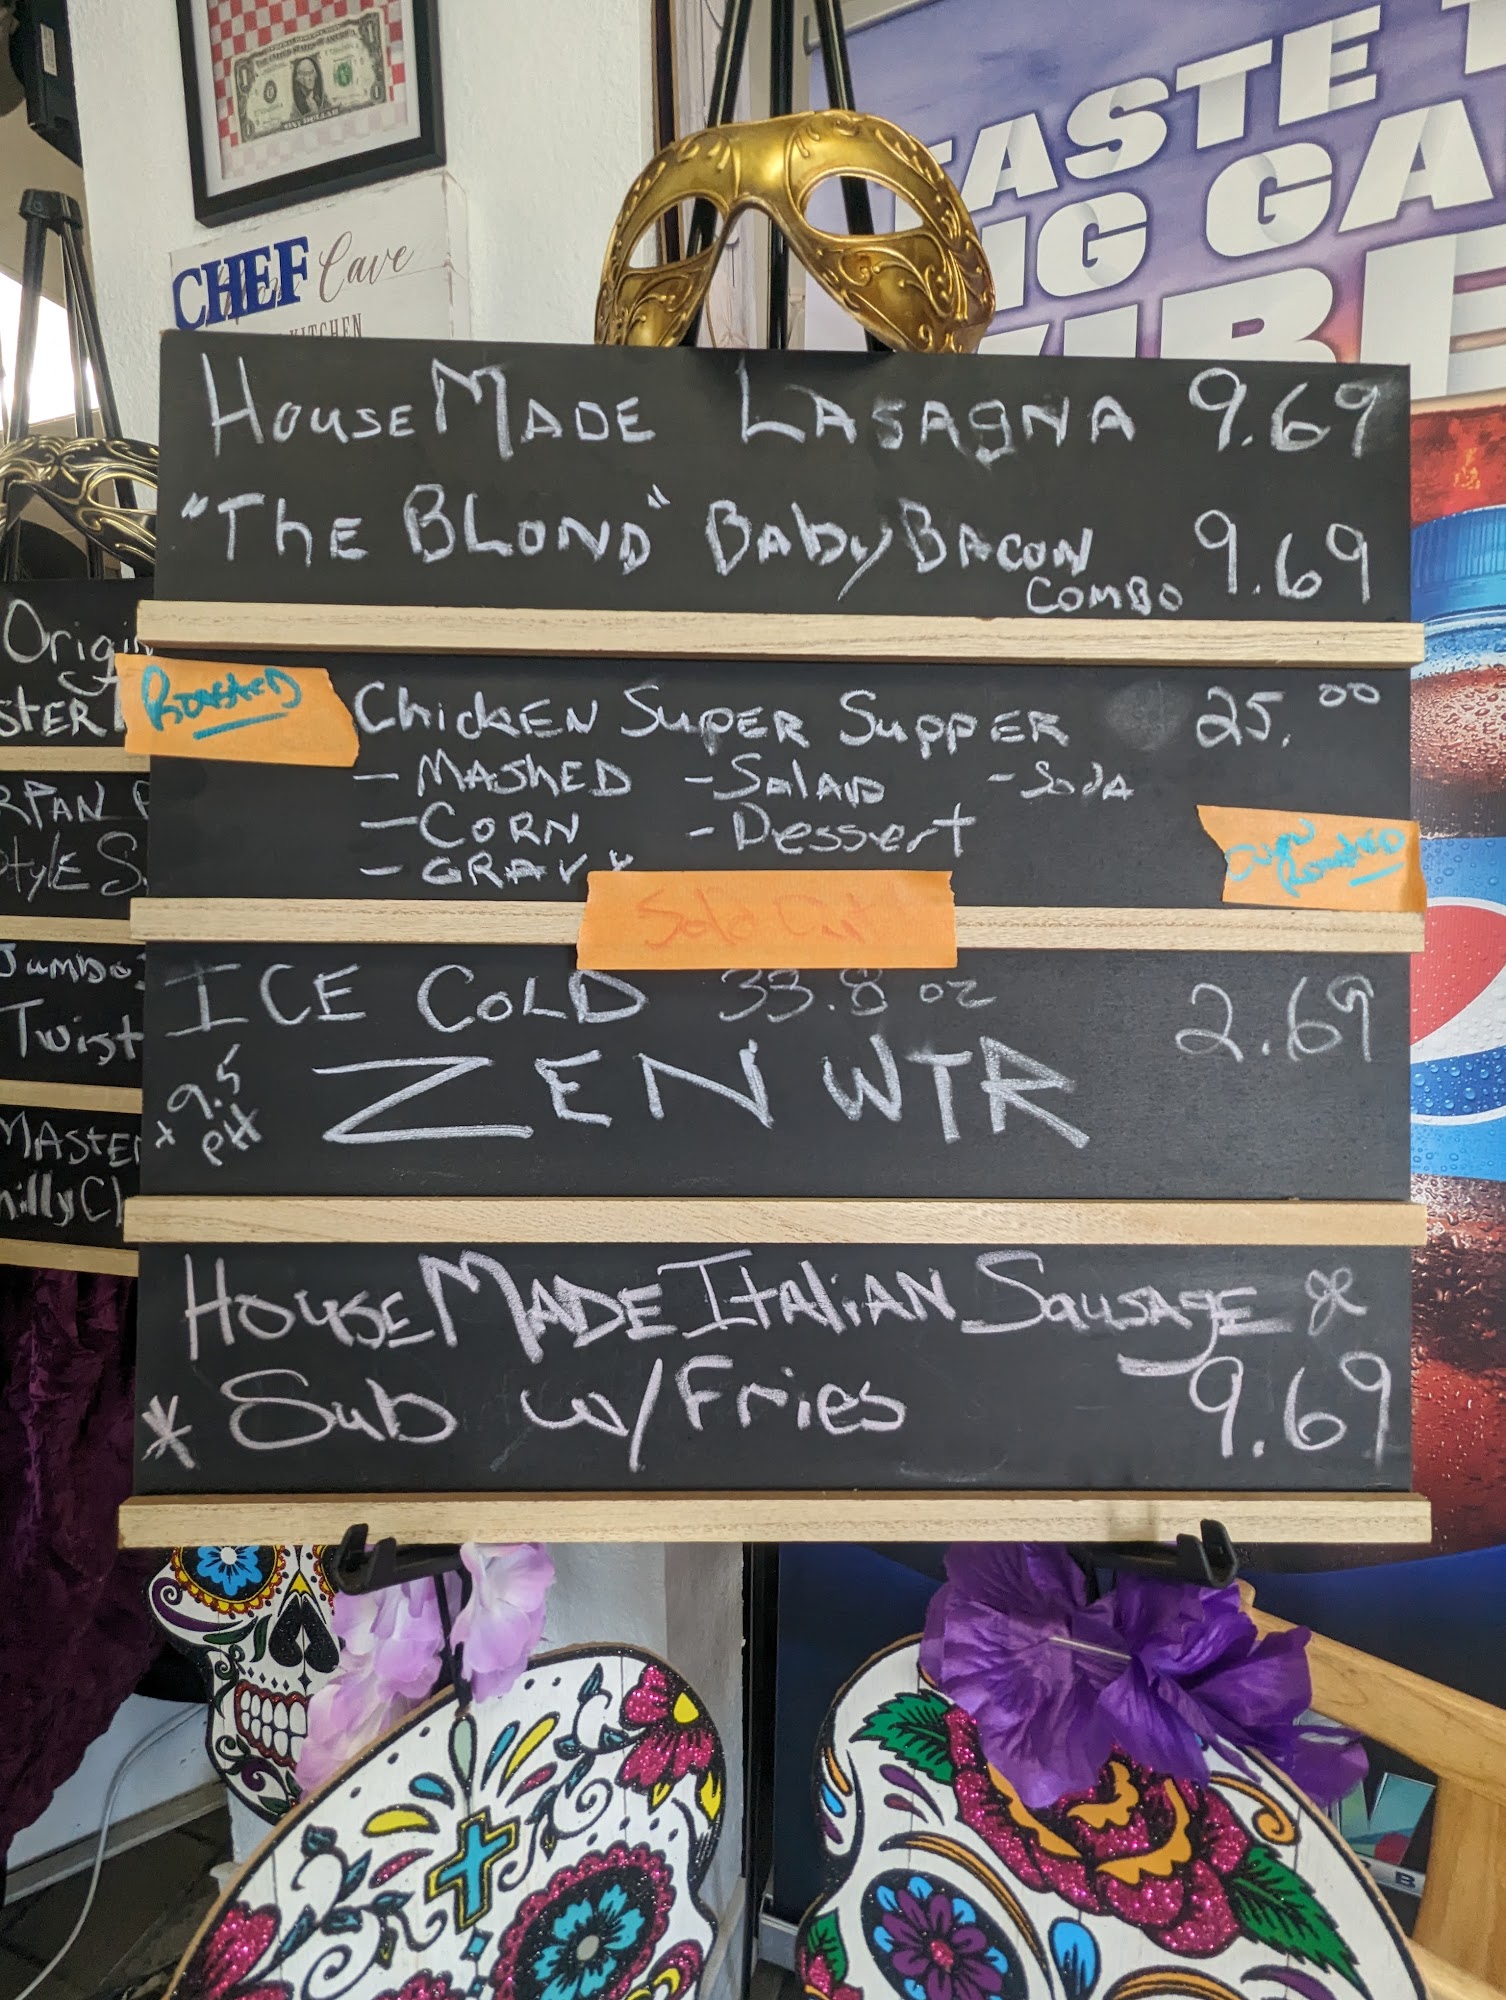 THE UNITED STATES OF AMERICA
ONE DOLLAR
CHEF Cave
KITCHEN
TASTE
GA
VIBE
HouseMADE LASAGNA 9.69
"The BLOND" BabyBACON 9.69
COMBO
ROASTED
ChickEN SupER SuppER 25.00
- MASHED - SALAD - SodA
- CORN - Dessert
- GRAVY
Sold Out
ICE COLD 33.8 oz 2.69
ZEN WTR
x 9.5
pH
HouseMADE ItaliAN SausAGE
* Sub w/Fries 9.69
Origin
STER
RPAN
StylE S
Jumbo
Twist
MASTER
hillyCh